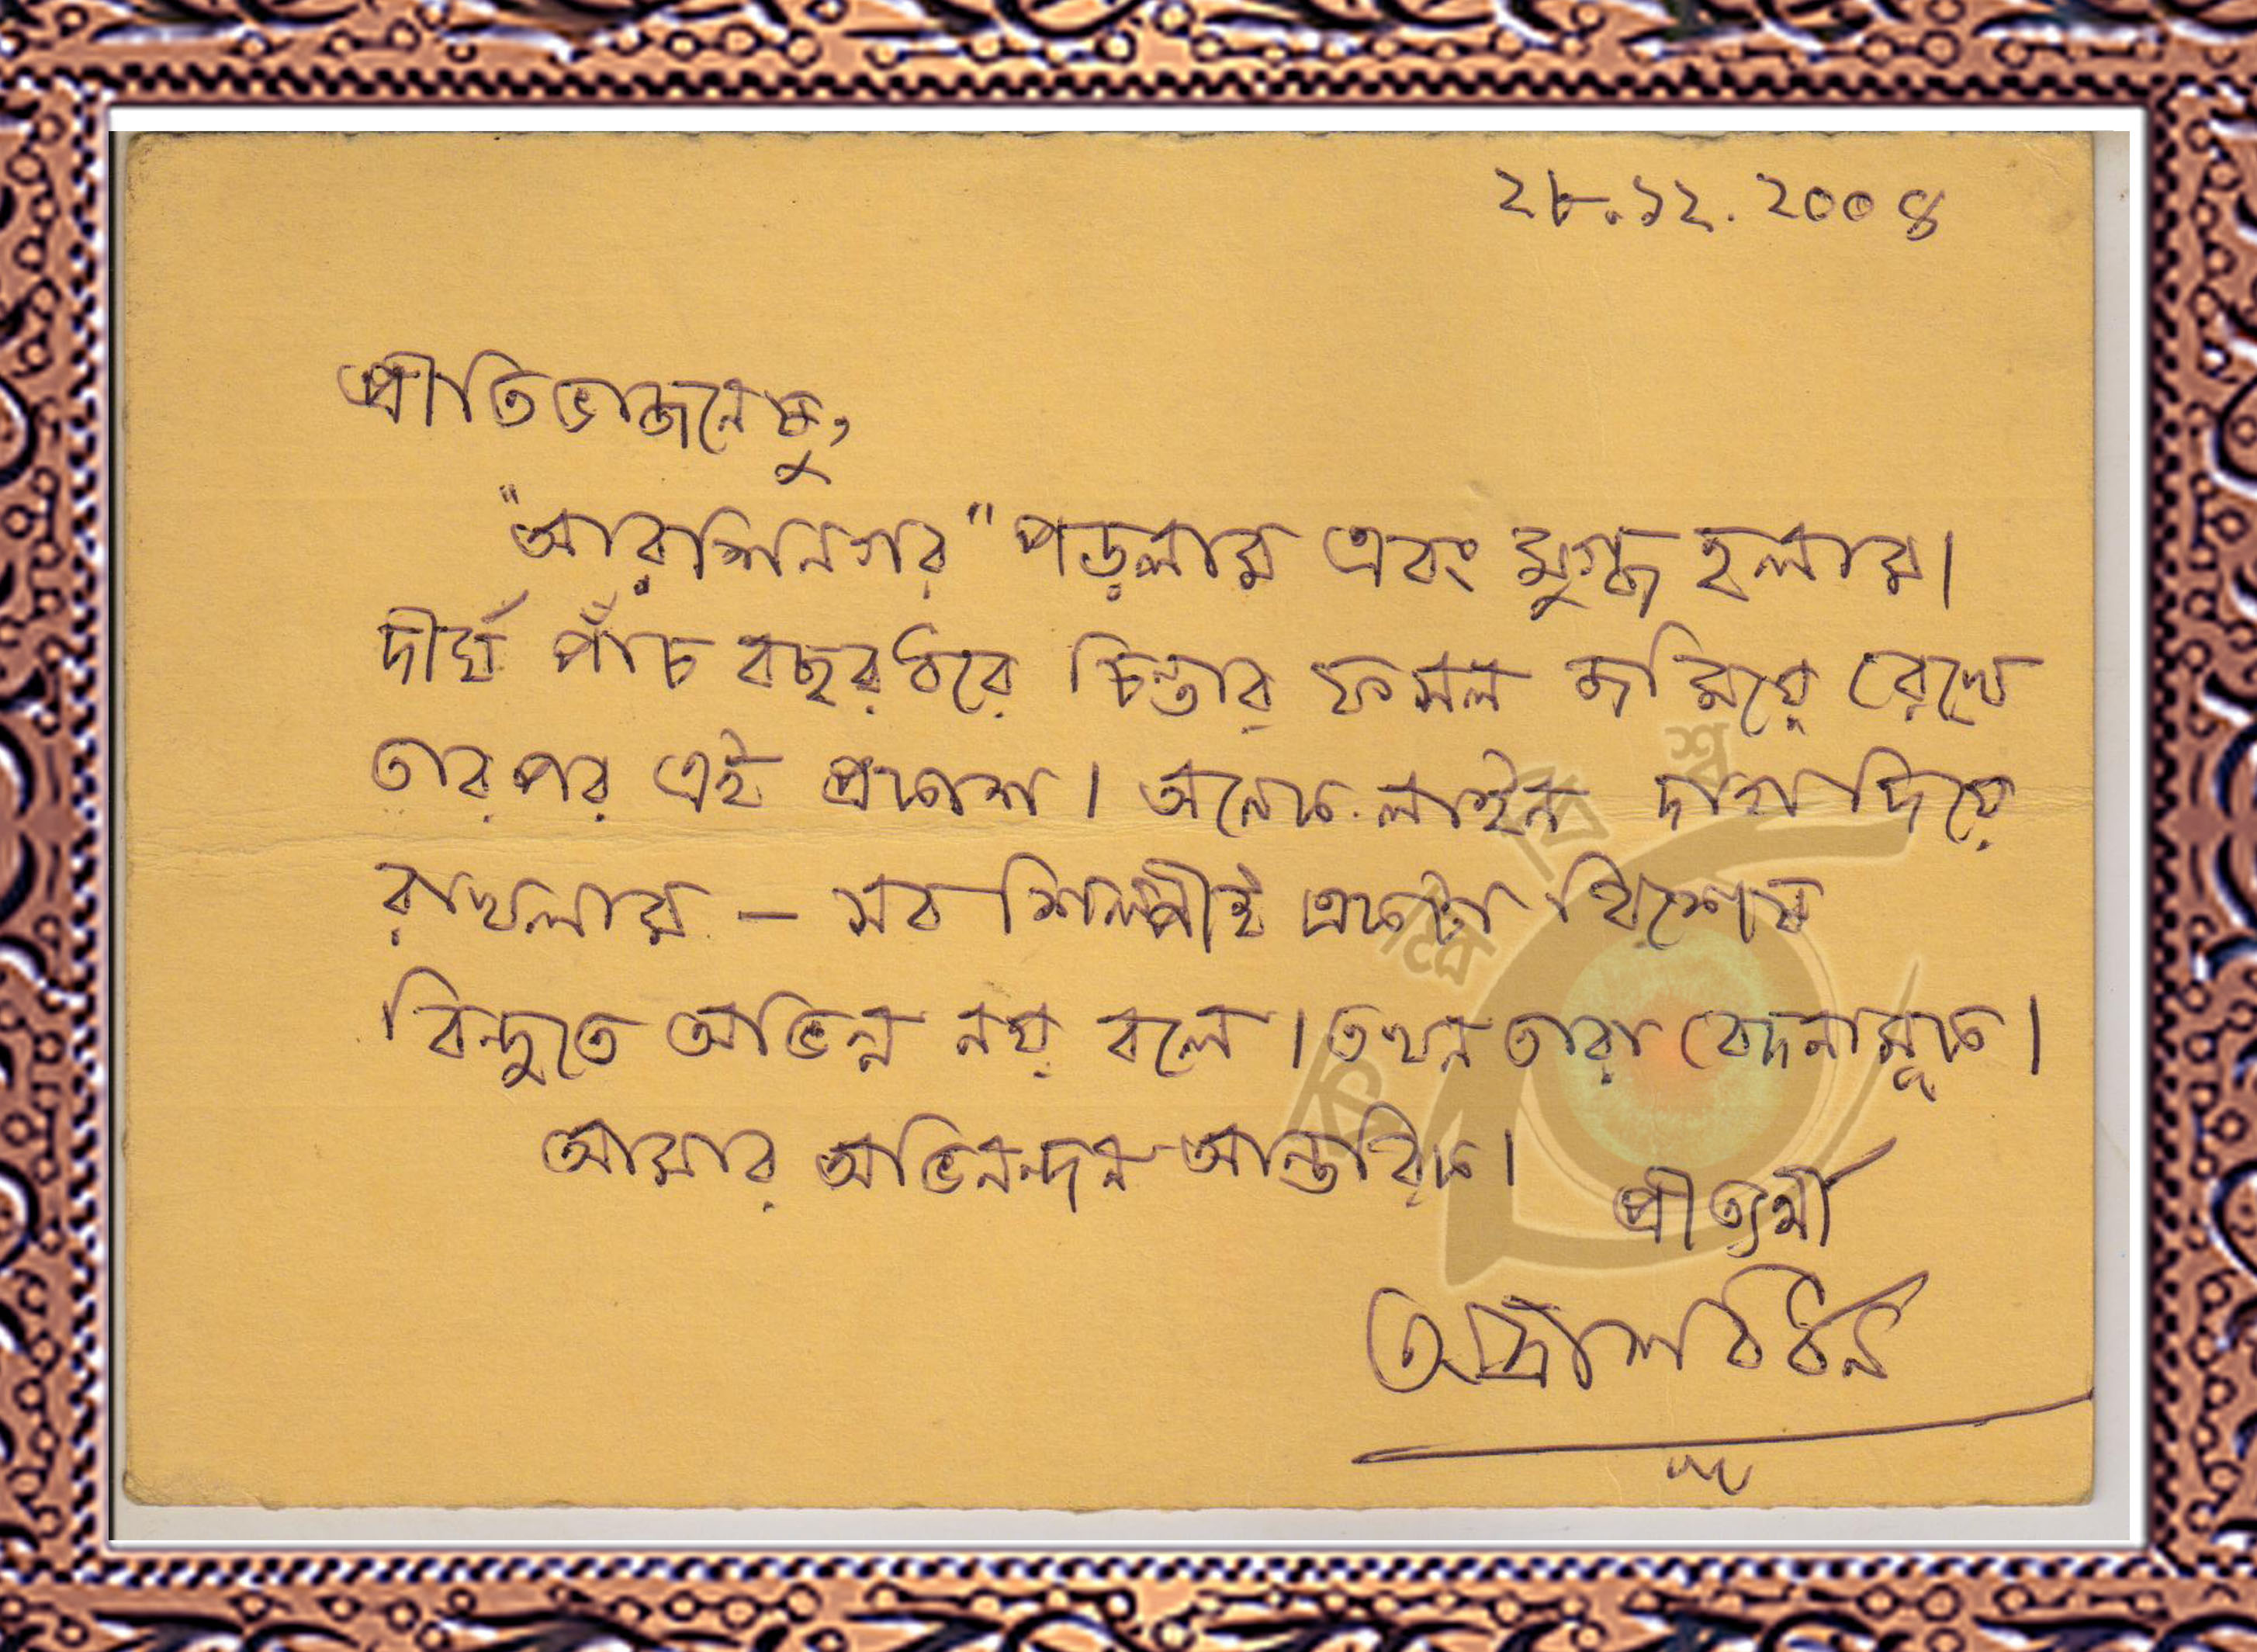 ২৮.১২.২০০৪
প্রীতিভাজনেষু,
"আরশিনগর" পড়লাম এবং মুগ্ধ হলাম।
দীর্ঘ পাঁচ বছর ধরে চিন্তার ফসল জমিয়ে রেখে
তারপর এই প্রকাশ। অনেক লাইন দাগ দিয়ে
রাখলাম – সব শিল্পীই একটা বিশেষ
বিন্দুতে অভিন্ন নয় বলে। তখন তারা বেদনামূক।
আমার অভিনন্দন আন্তরিক।
প্রীত্যর্থী